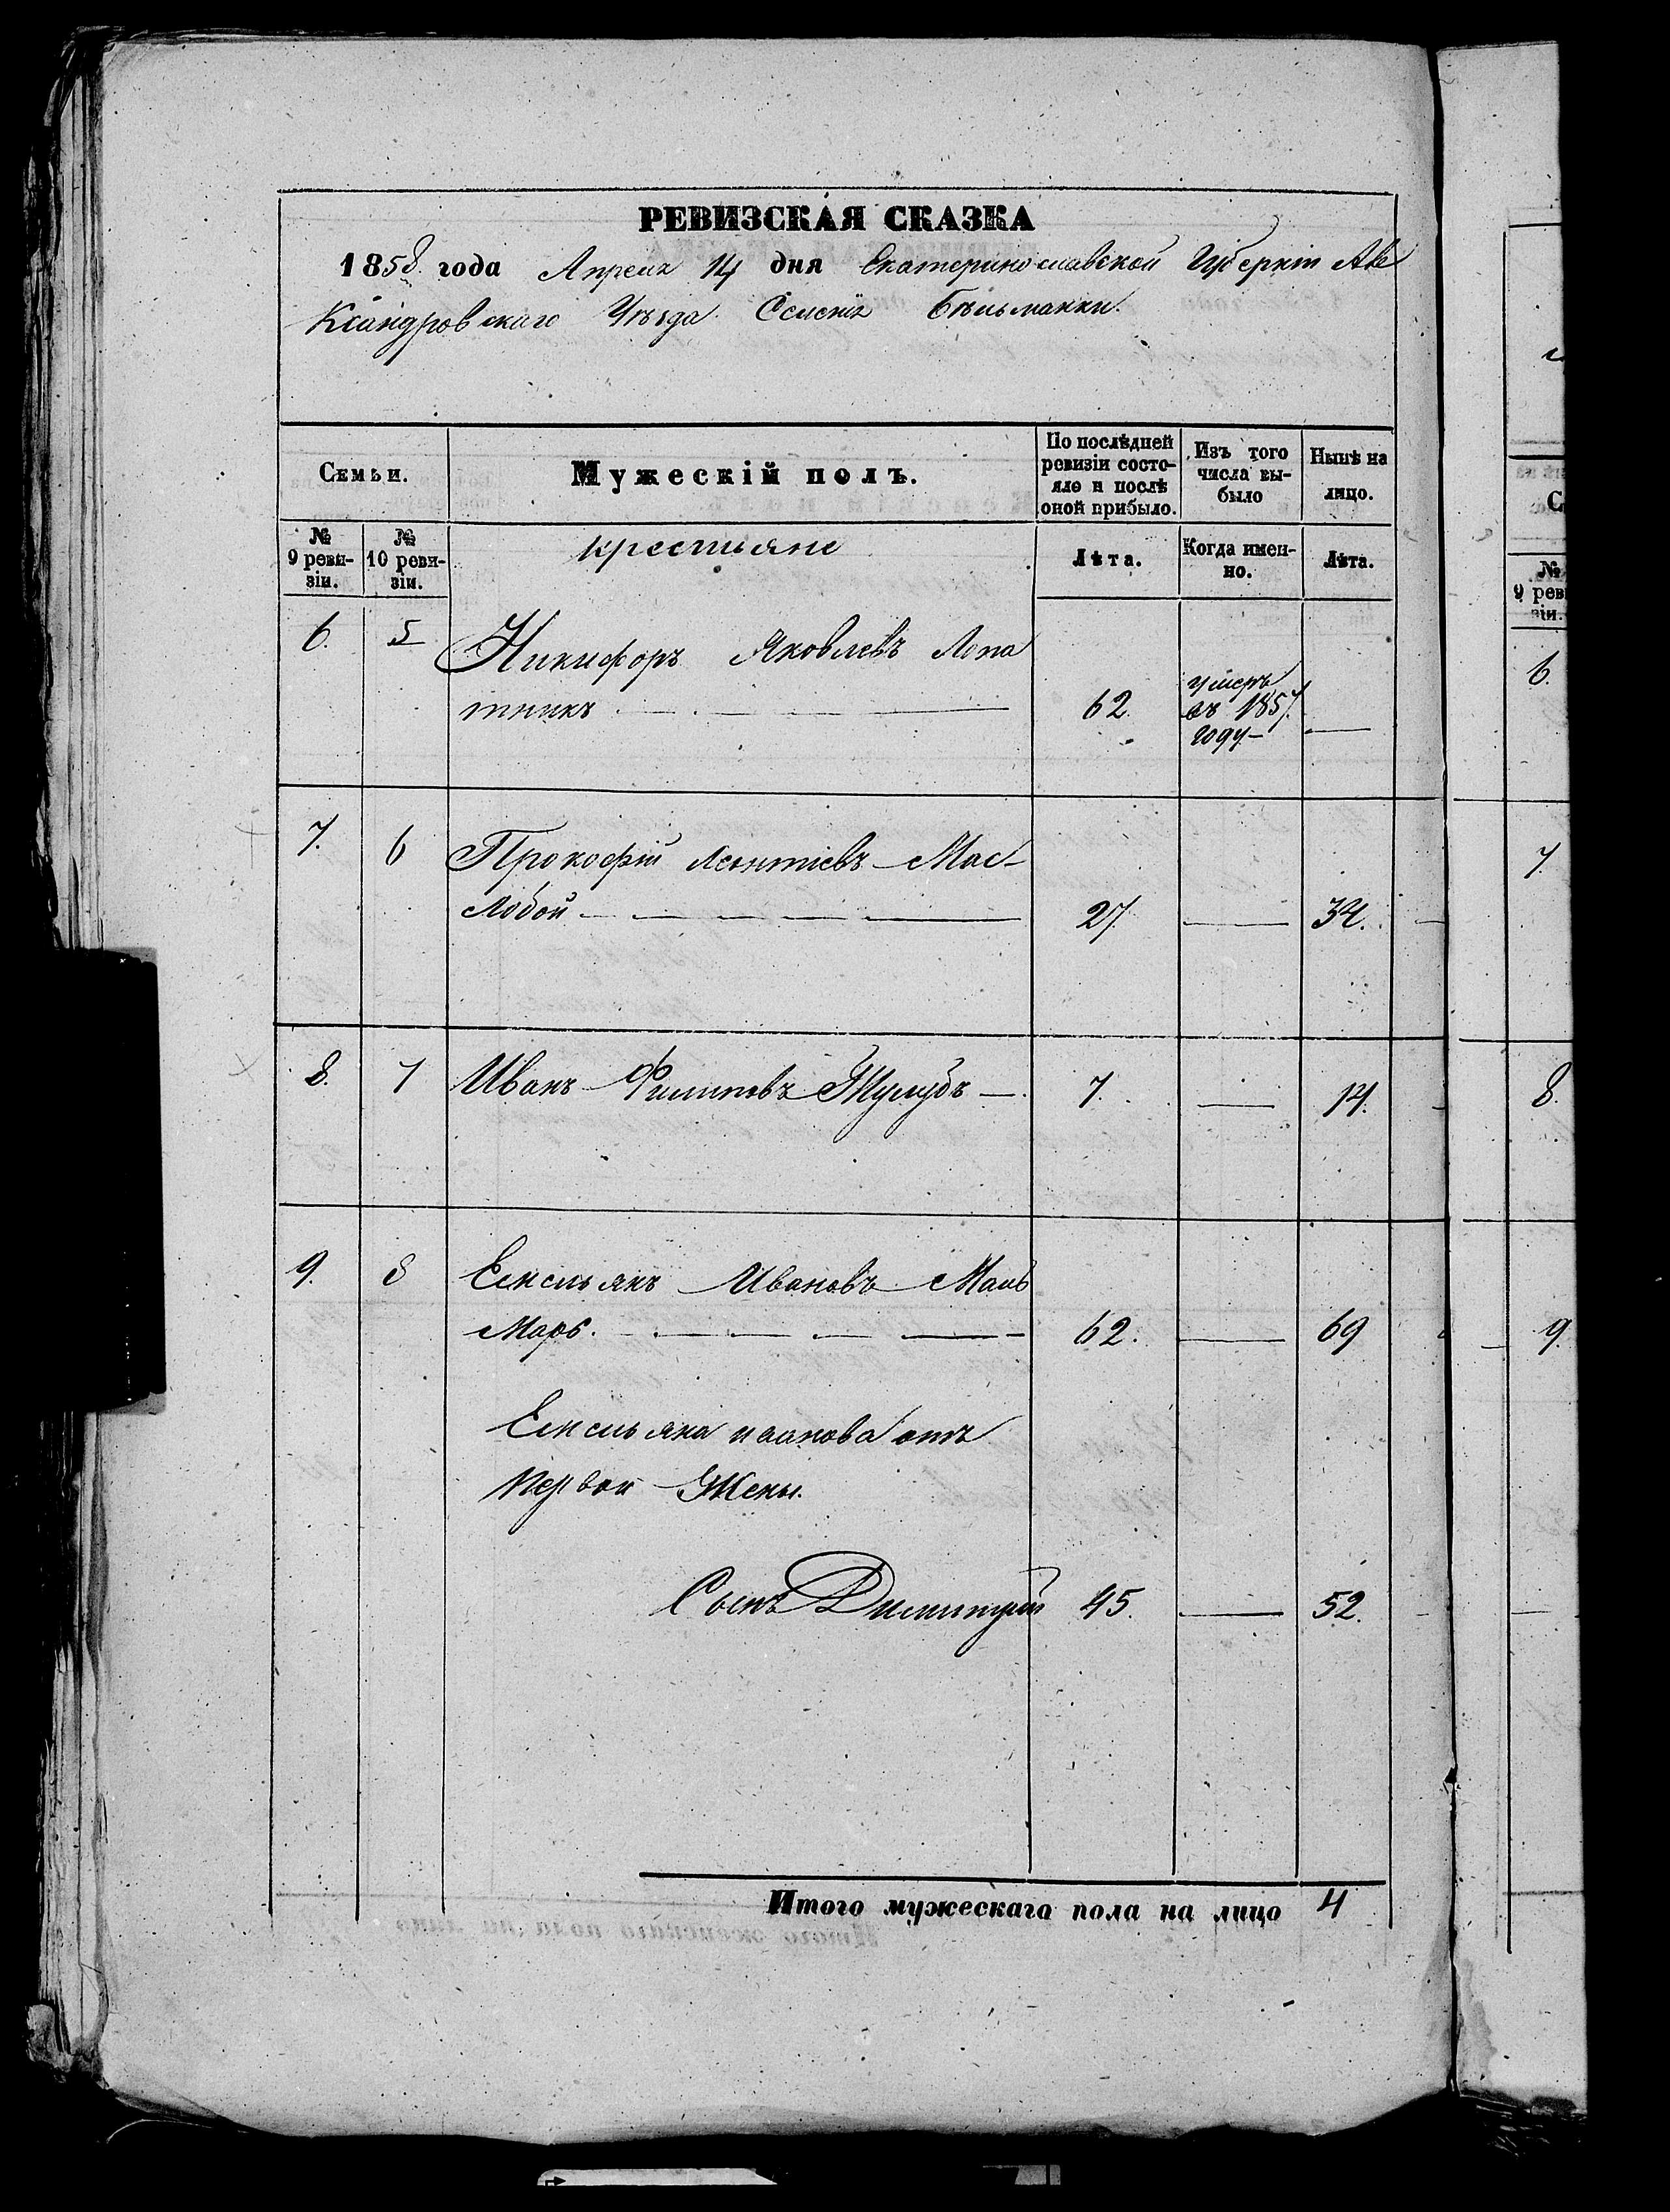 РЕВИЗСКАЯ СКАЗКА
1858 года Апреля 14 дня Екатеринославской Губерніи Але
Ксандровскаго Уѣзда Селенія Бѣльманки.
Семьи.
Мужескій полъ.
По послѣдней ревизіи состояло и послѣ оной прибыло.
Изъ того числа выбыло
Нынѣ на лицо.
№ 9 ревизіи.
№ 10 ревизіи.
крестьяне
Лѣта.
Когда именно.
Лѣта.
6. 5 Никифоръ Яковлевъ Лопа
тникъ 62. умеръ въ 1857 году
7. 6 Прокофій Леонтіевъ Мас-
Лобой 27 34.
8. 7 Иванъ Филиповъ Жулубъ 7. 14.
9. 8 Емельянъ Ивановъ
62. 69
Емельяна иванова отъ
Первой Жены.
Сынъ Димитрій 45. 52.
Итого мужескаго пола на лицо 4
№
9 реви
зіи.
6.
7
8.
9.